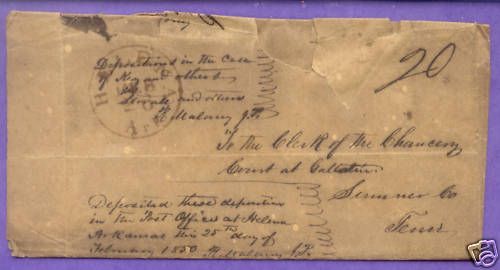 Depositions in the Case
of Key and others
vs
and others
H Maloney J.P.
20
HELENA
Ark
To the Clerk of the Chancery
Court at Gallatin
Sumner Co
Tenn
Deposited these deposition
in the Post Office at Helena
Arkansas this 25th day of
February 1850 H Maloney J.P.
ebay